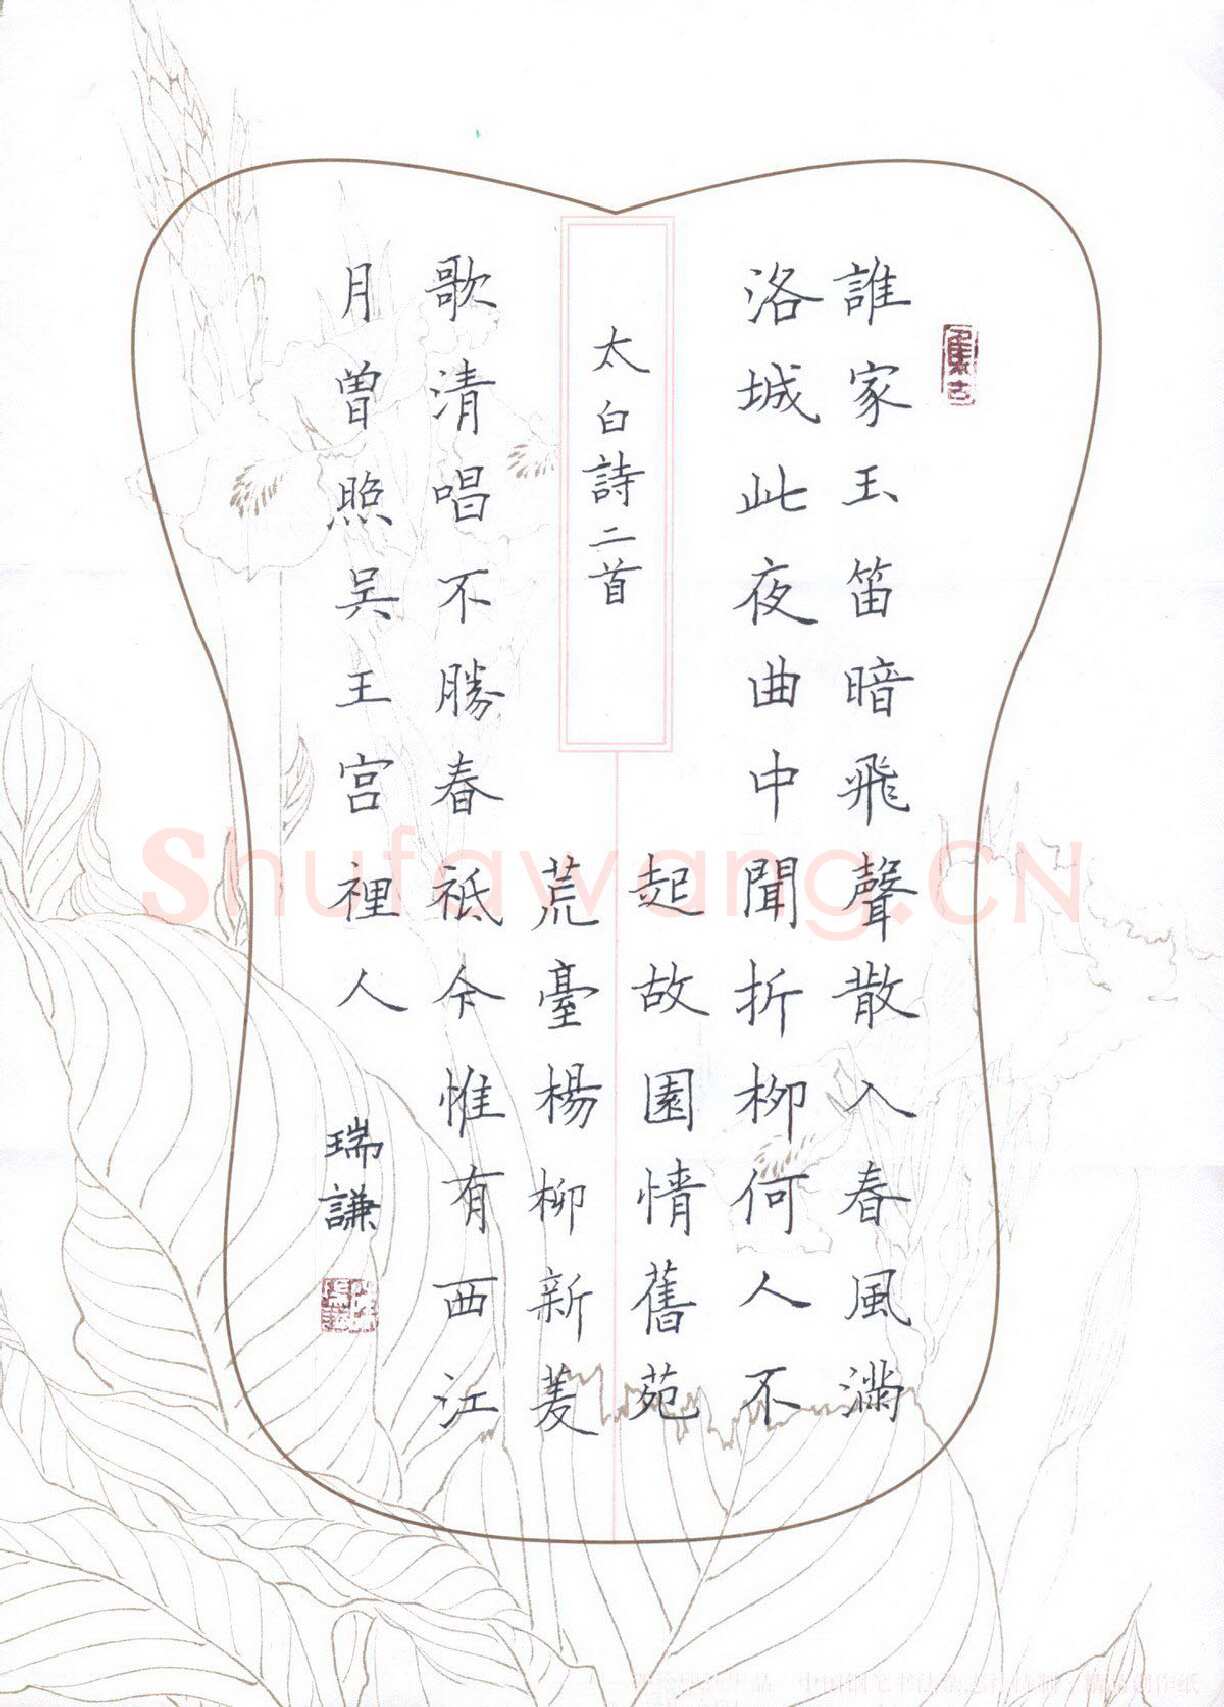 誰家玉笛暗飛聲散入春風滿
洛城此夜曲中聞折柳何人不
起故園情舊苑
太白詩二首
荒臺楊柳新菱
歌清唱不勝春祗今惟有西江
月曾照吴王宫裡人
瑞謙
Shufawang.CN